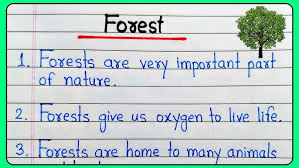 Forest
1. Forests are very important part
of nature.
2. Forests give us oxygen to live life.
3. Forests are home to many animals